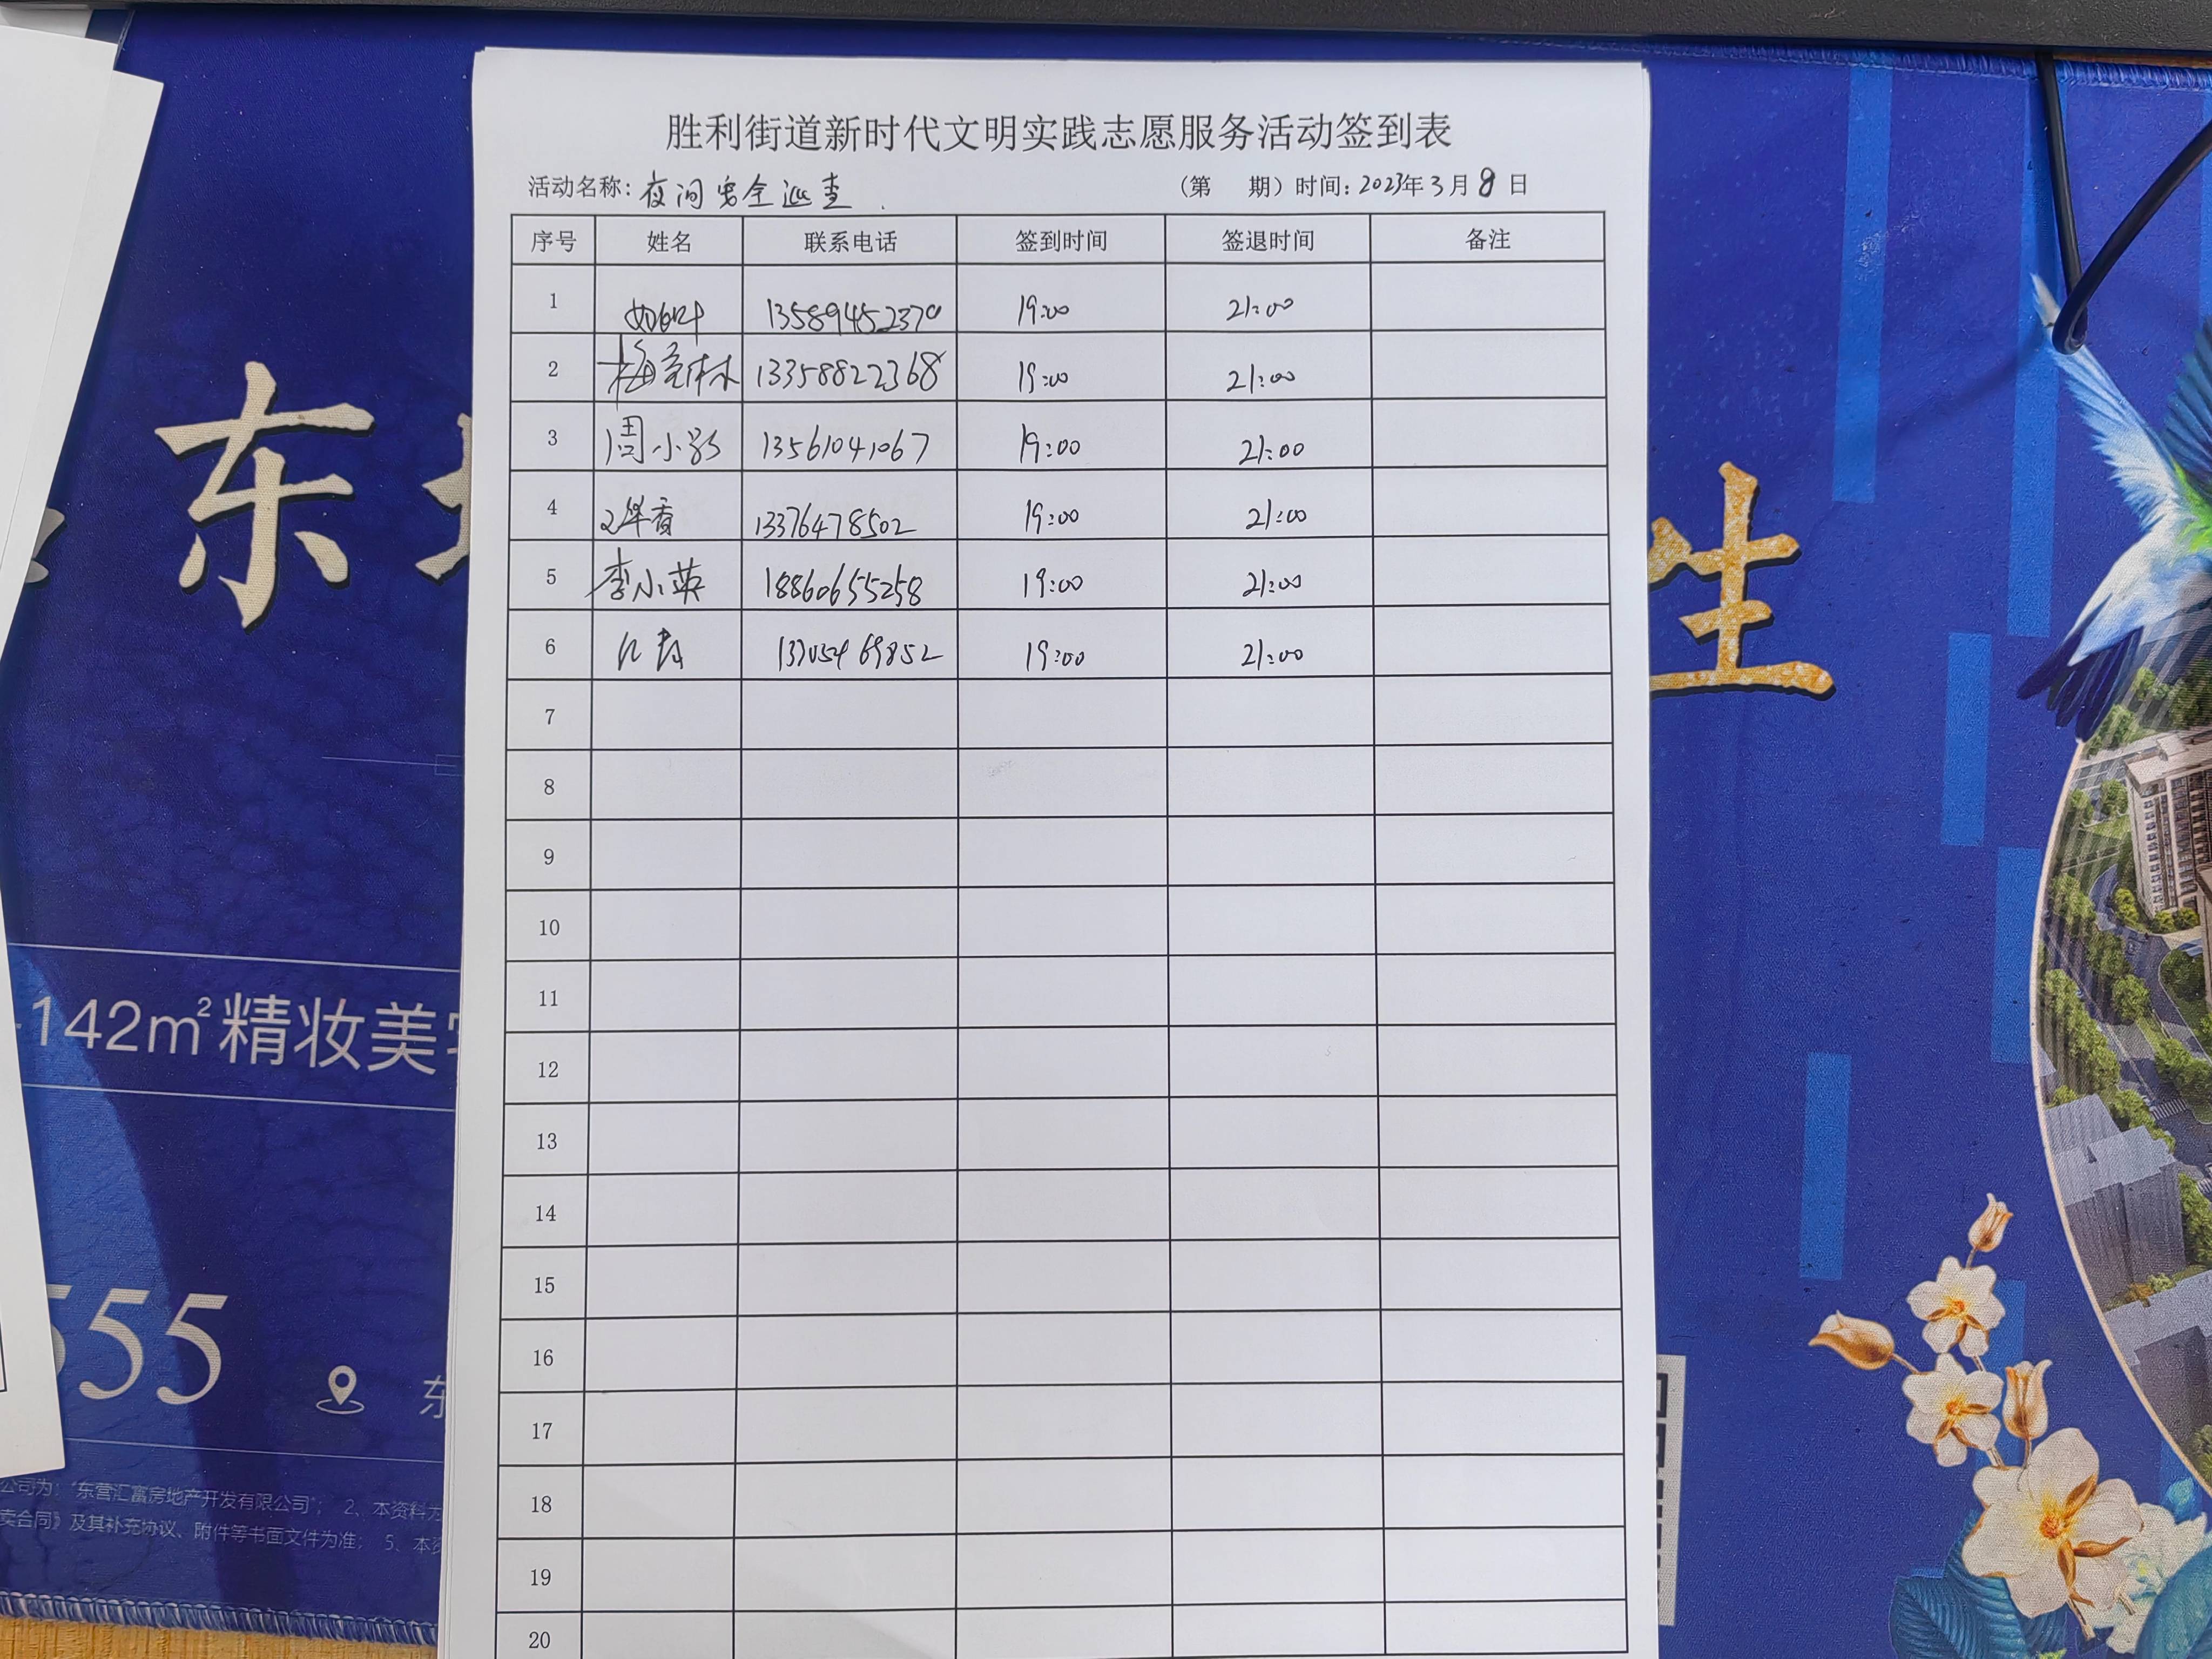 胜利街道新时代文明实践志愿服务活动签到表
活动名称：夜间安全巡查
（第 期）时间：2023年3月8日
序号 姓名 联系电话 签到时间 签退时间 备注
1 13589452370 19:00 21:00
2 13358822368 19:00 21:00
3 周小影 13561041067 19:00 21:00
4 13376478502 19:00 21:00
5 李小英 18860655258 19:00 21:00
6 19:00 21:00
7
8
9
10
11
12
13
14
15
16
17
18
19
20
东
生
142m²精妆美
555
东
公司为：“东营汇富房地产开发有限公司”； 2、本资料
卖合同》及其补充协议、附件等书面文件为准； 5、本